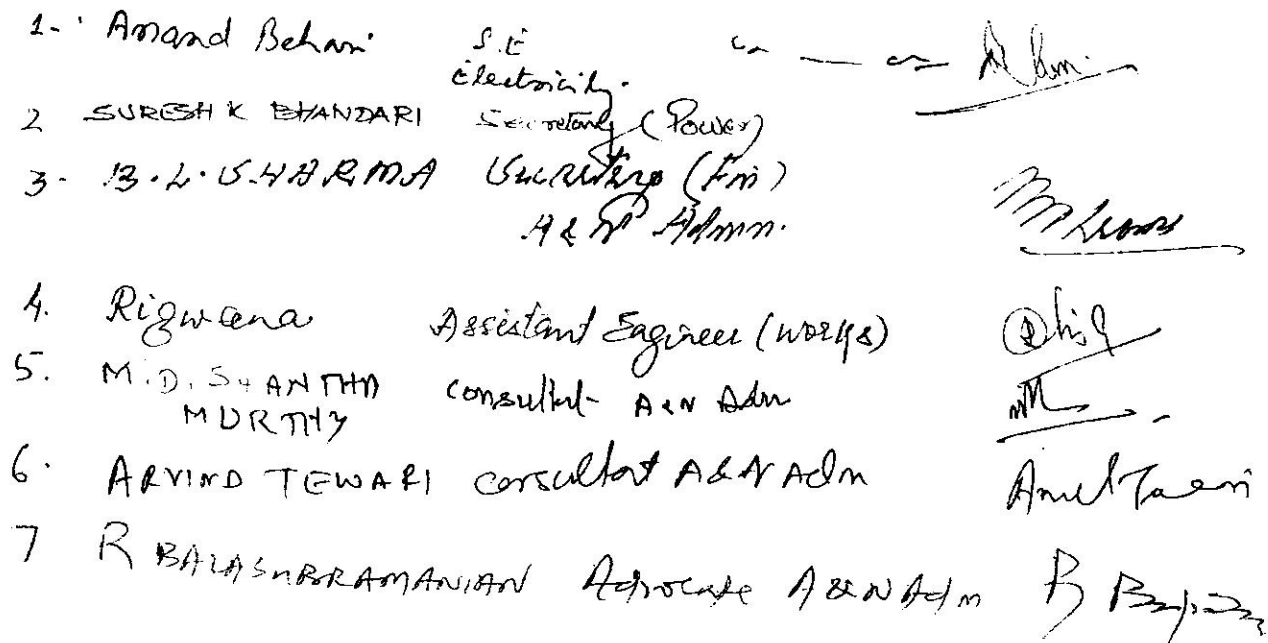 1- Anand Behari S.E
Electricity.
2 SURESH K BHANDARI Secretary (Power)
3- B.L. SHARMA Secretary (Fin)
A & N Admn.
4. Rizwana Assistant Engineer (works)
5. M.D. SHANTHA consultant A&N Adm
MURTHY
6. ARVIND TEWARI consultant A&N Adm
7 R BALASUBRAMANIAN Advocate A&N Adm